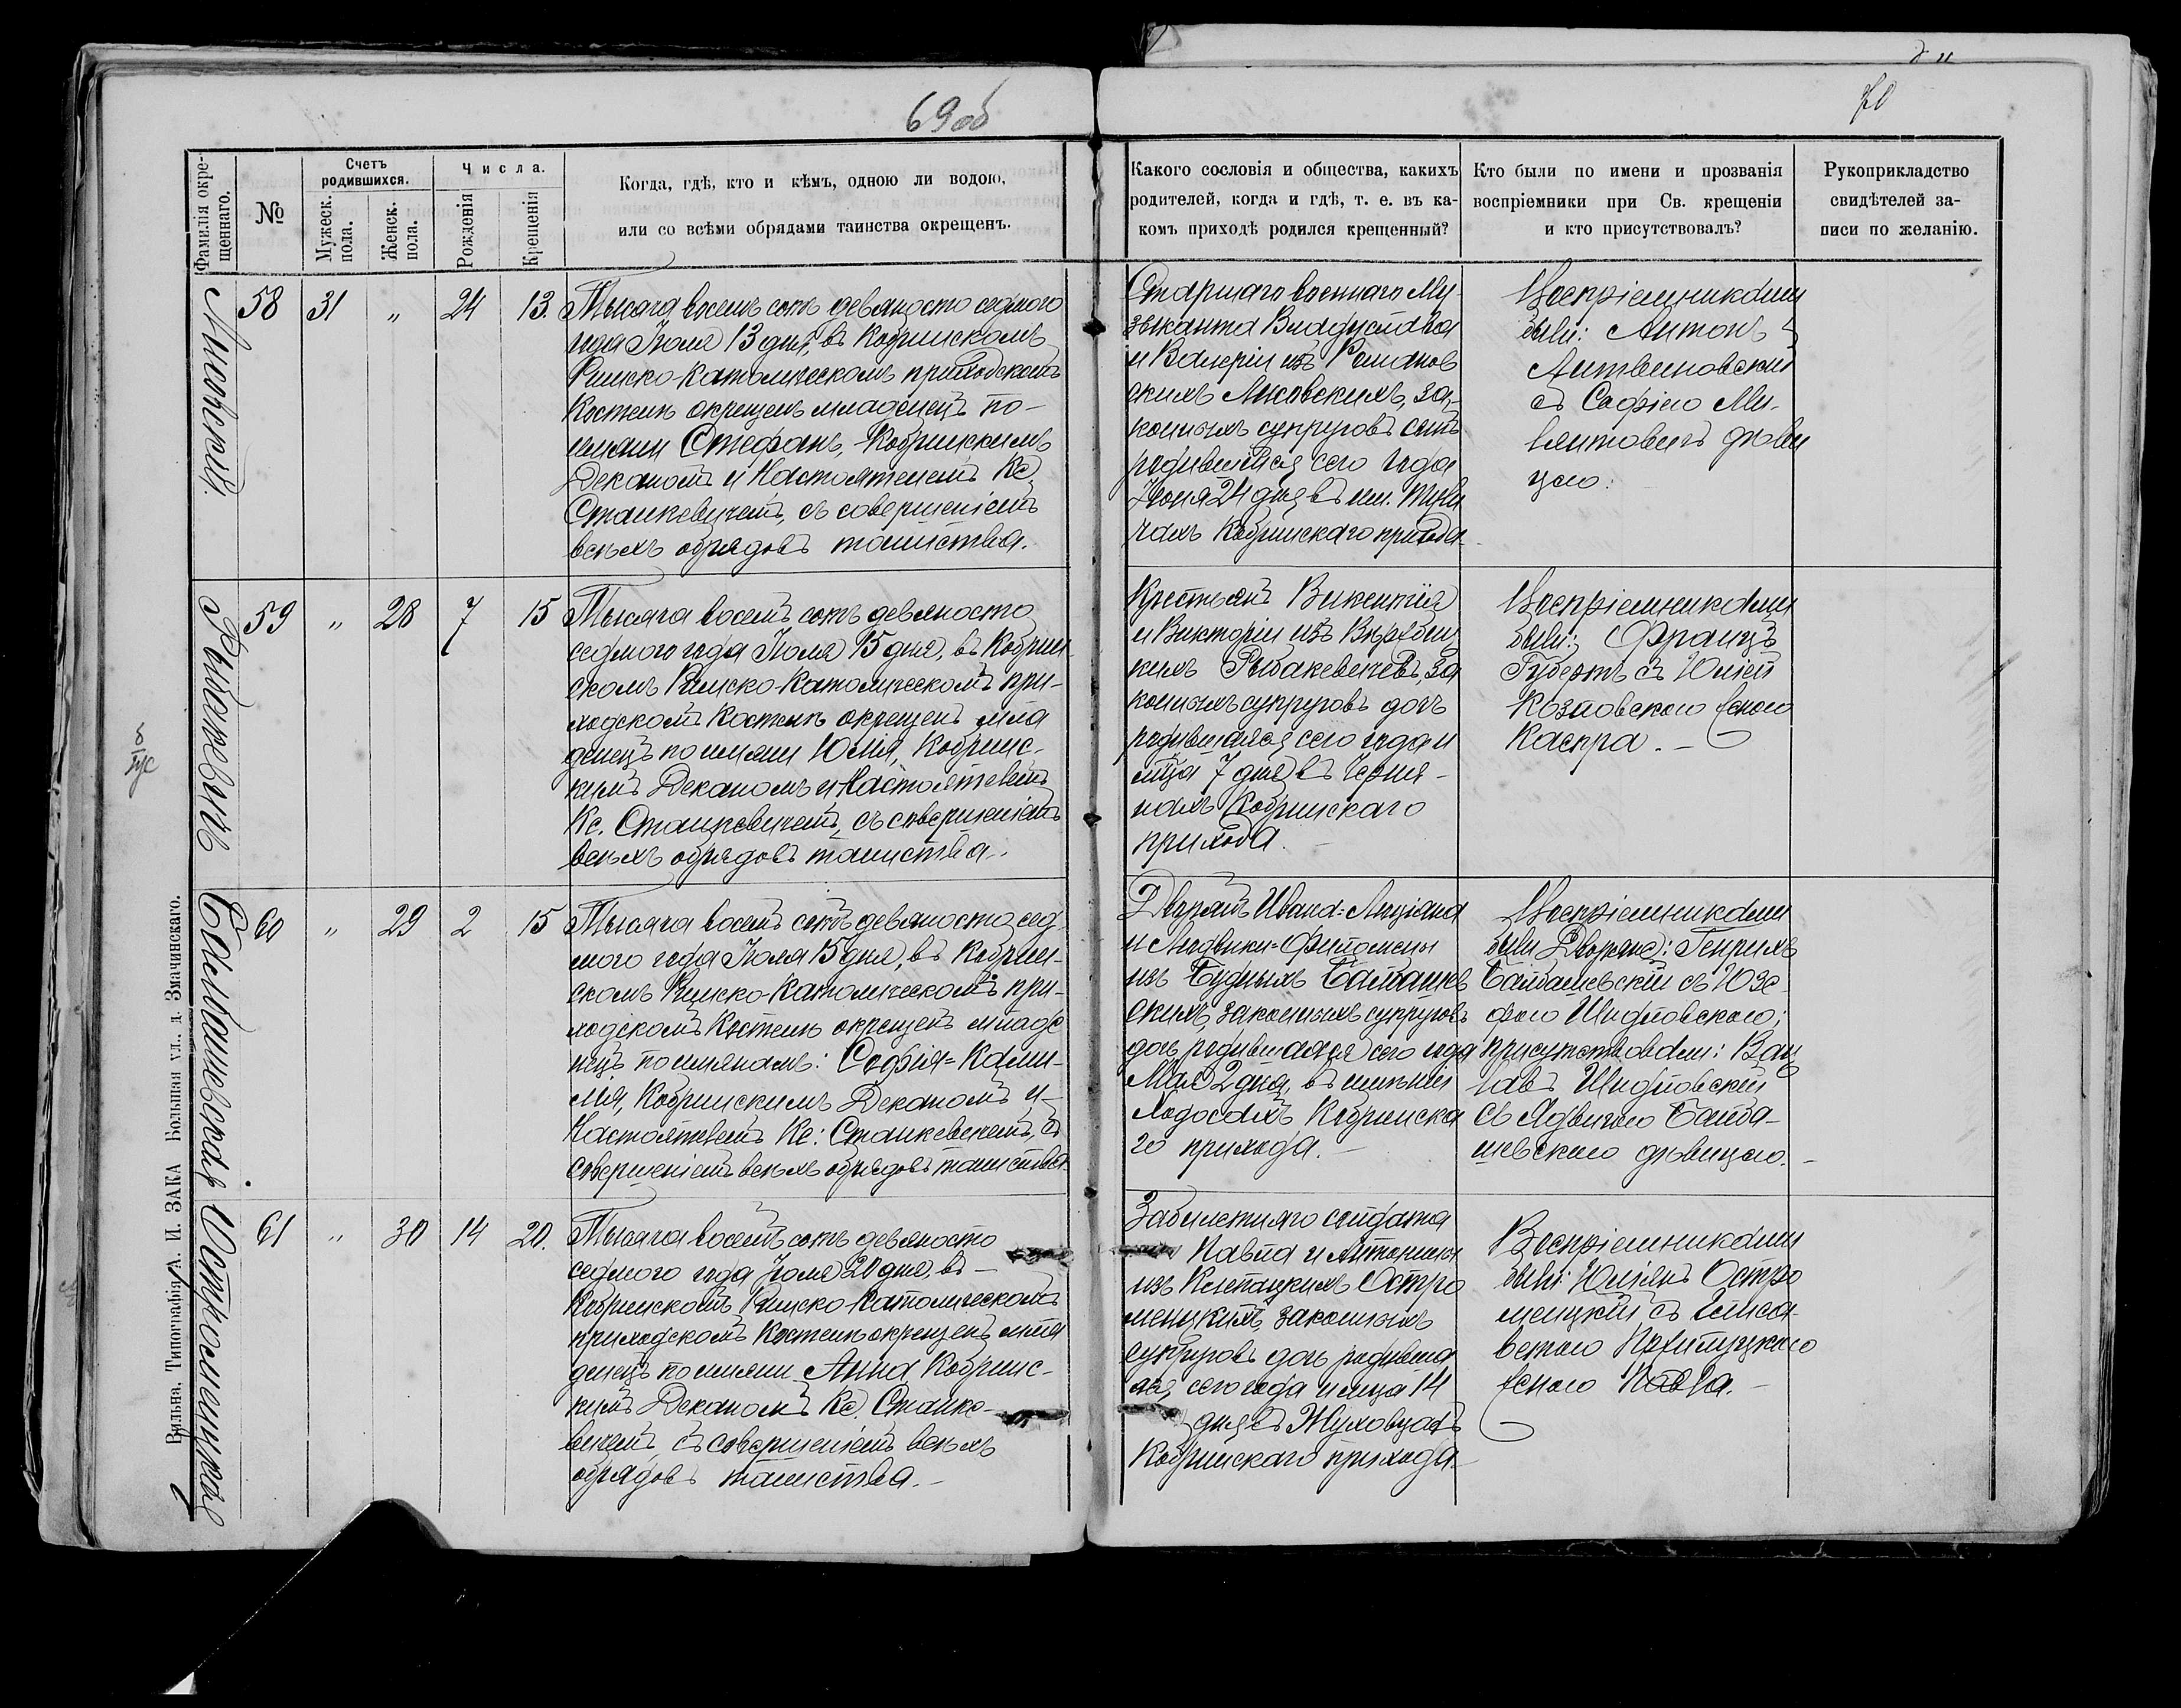 69об
70
Фамилія окре-
щеннаго.
№
Счетъ
родившихся.
Мужеск.
пола.
Женск.
пола.
Числа.
Рожденія
Крещенія
Когда, гдѣ, кто и кѣмъ, одною ли водою,
или со всѣми обрядами таинства окрещенъ.
Какого сословія и общества, какихъ
родителей, когда и гдѣ, т. е. въ ка-
комъ приходѣ родился крещенный?
Кто были по имени и прозванія
воспріемники при Св. крещеніи
и кто присутствовалъ?
Рукоприкладство
свидѣтелей за-
писи по желанію.
58 31 " 24 13.
Тысяча восемь сотъ девяносто седмого
года Іюля 13 дня, въ Кобринскомъ
Римско-Католическомъ приходскомъ
Костелѣ окрещенъ младенецъ по-
имяни Стефанъ, Кобринскимъ
Деканомъ и Настоятелемъ Кс.
Станкевичемъ, съ совершеніемъ
всѣхъ обрядовъ таинства.
Старшаго военнаго Му-
зыканта Владислава
и Валеріи изъ Романов
скихъ
за-
конныхъ супруговъ сынъ
родившійся сего года
Іюня 24 дня въ им.
Кобринскаго прихода.
Воспріемниками
были: Антонъ
Литвиновскій
съ Софіею Ми-
дѣви
цею.
Рыбакевичъ
59 " 28 7 15
Тысяча восемь сотъ девяносто
седмого года Іюля 15 дня, въ Кобрин
скомъ Римско-Католическомъ при-
ходскомъ Костелѣ окрещенъ мла
денецъ по имяни Юлія, Кобринс-
кимъ Деканомъ и Настоятелемъ
Кс. Станкевичемъ, съ совершеніемъ
всѣхъ обрядовъ таинства.
Крестьянъ Викентія
и Викторіи изъ
Рыбакевичевъ, за
конныхъ супруговъ дочь
родившаяся сего года и
мѣца 7 дня въ Черня-
нахъ Кобринскаго
прихода.
Воспріемниками
были: Францъ
Губертъ съ Юліей
Козловскою женою
Каспра.
Балташевская
60 " 29 2 15
Тысяча восемь сотъ девяносто сед
мого года Іюля 15 дня, въ Кобрин-
скомъ Римско-Католическомъ при-
ходскомъ Костелѣ окрещенъ младе
нецъ по имянамъ: Софія=Ками-
лія, Кобринскимъ Деканомъ и
Настоятелемъ Кс: Станкевичемъ, съ
совершеніемъ всѣхъ обрядовъ таинства.
Дворянъ Ивана=Люціана
и Людвики=Филомены
изъ Будныхъ Балташев
скихъ законныхъ супруговъ
дочь родившаяся сего года
Мая 2 дня, въ имѣніи
Лодосахъ Кобринска
го прихода.
Воспріемниками
были Дворяне: Генрихъ
Балташевскій съ Юзе-
фою Шидловскою;
присутствовали: Вац
лавъ Шидловскій
съ Ядвигою Балта-
шевскою дѣвицею.
Остромецкая
61 " 30 14 20.
Тысяча восемь сотъ девяносто
седмого года Іюля 20 дня, въ
Кобринскомъ Римско-Католическомъ
приходскомъ Костелѣ окрещенъ мла
денецъ по имяни Анна Кобринс-
кимъ Деканомъ Кс. Станке-
вичемъ съ совершеніемъ всѣхъ
обрядовъ таинства.
Забилетняго солдата
Павла и Антонины
изъ Клепацкихъ Остро
мецкихъ, законныхъ
супруговъ дочь родивша
яся сего года и мѣца 14
дня въ Жуховцахъ
Кобринскаго прихода.
Воспріемниками
были: Юліянъ Остро
мецкій съ Елиса-
ветою
женою Павла.
Вильна, Типографія А. И. ЗАКА Большая ул., д. Змачинскаго.